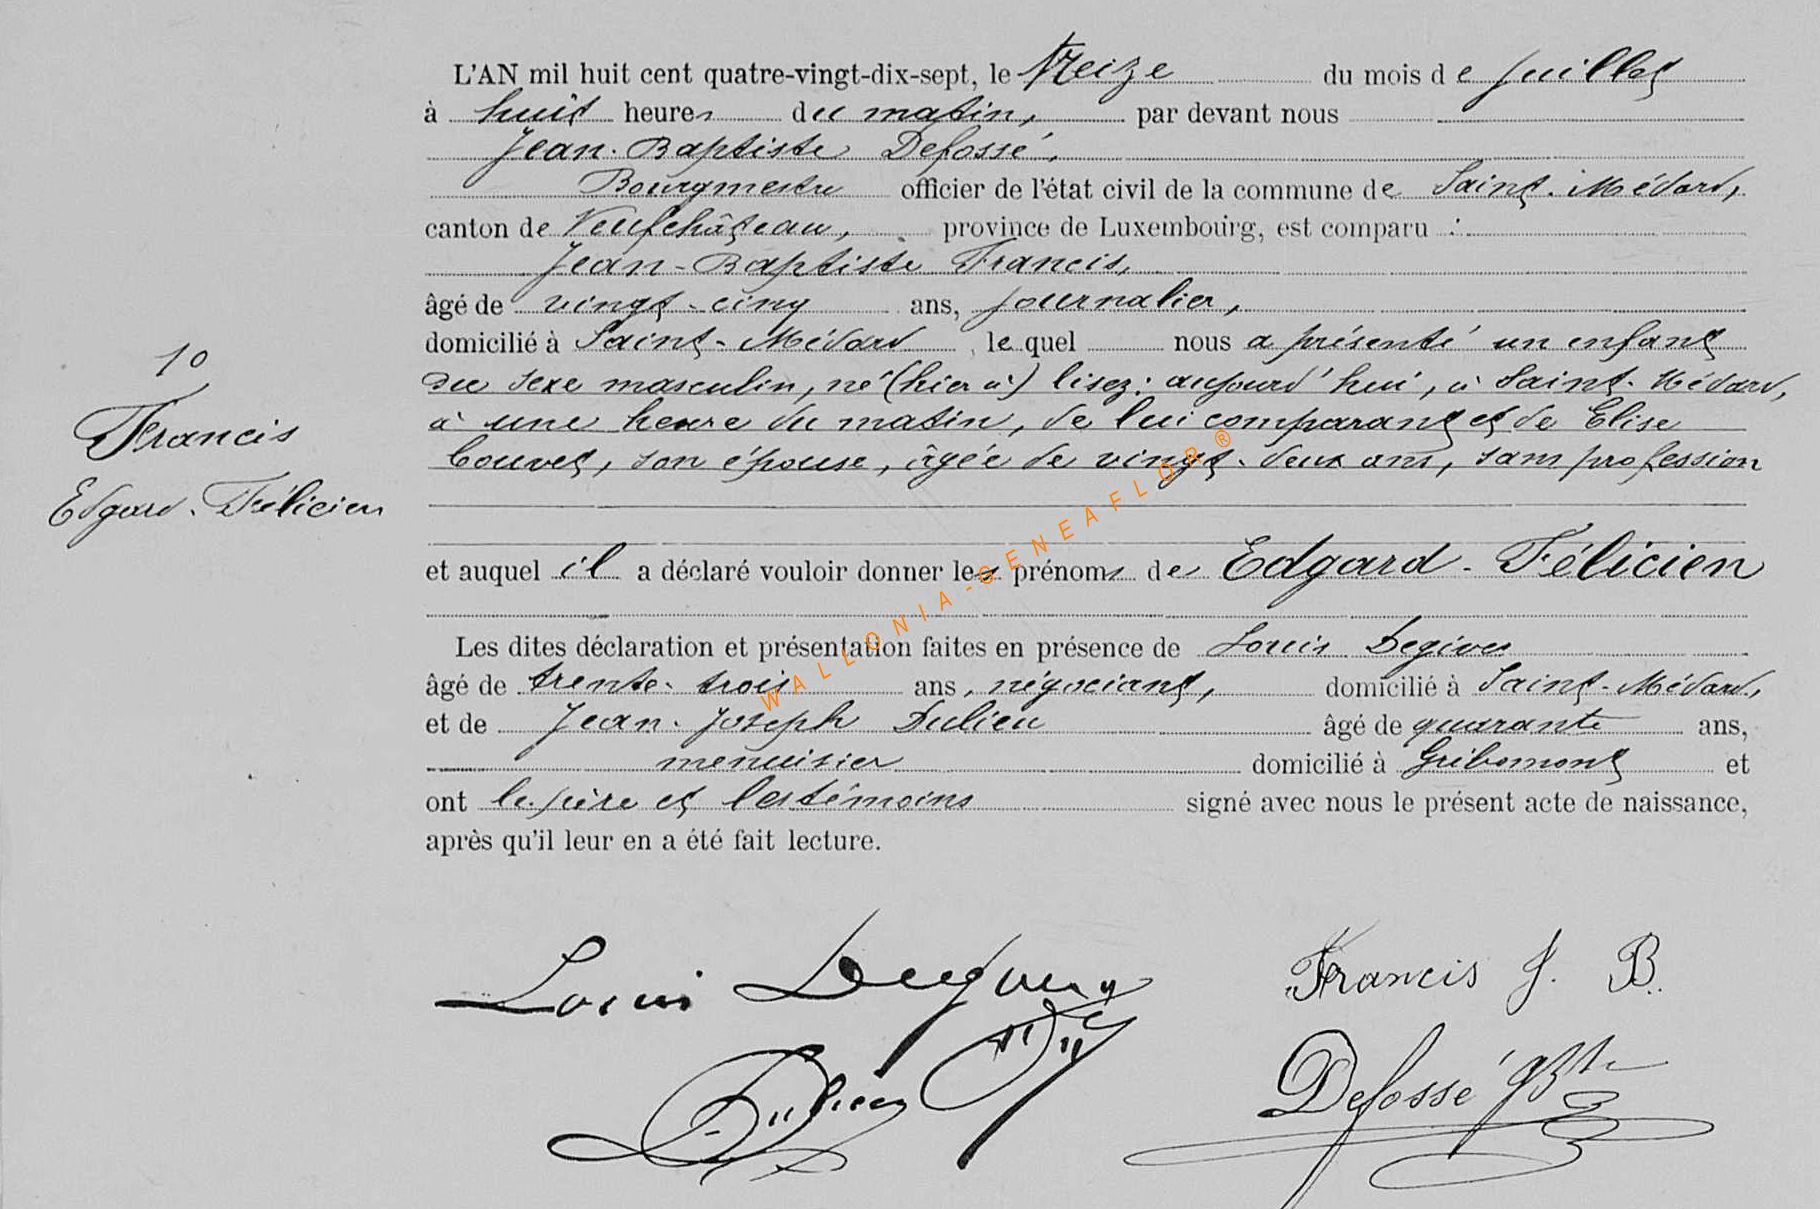 L'AN mil huit cent quatre-vingt-dix-sept, le treize du mois de juillet
à huit heures du matin, par devant nous
Jean-Baptiste Defossé,
Bourgmestre officier de l'état civil de la commune de Saint-Médard,
canton de Neufchâteau, province de Luxembourg, est comparu :
Jean-Baptiste Francis,
âgé de vingt-cinq ans, journalier,
domicilié à Saint-Médard, lequel nous a présenté un enfant
du sexe masculin, né (hier à) lisez: aujourd'hui, à Saint-Médard,
à une heure du matin, de lui comparant et de Elise
Couvet, son épouse, âgée de vingt-deux ans, sans profession
et auquel il a déclaré vouloir donner les prénoms de Edgard-Félicien
Les dites déclaration et présentation faites en présence de Louis Degives
âgé de trente-trois ans, négociant, domicilié à Saint-Médard,
et de Jean-Joseph Dulieu âgé de quarante ans,
menuisier domicilié à Gribomont et
ont le père et les témoins signé avec nous le présent acte de naissance,
après qu'il leur en a été fait lecture.
10
Francis
Edgard-Félicien
WALLONIA-GENEAFLOR®
Louis
Francis J. B.
Dulieu
Defossé JBte